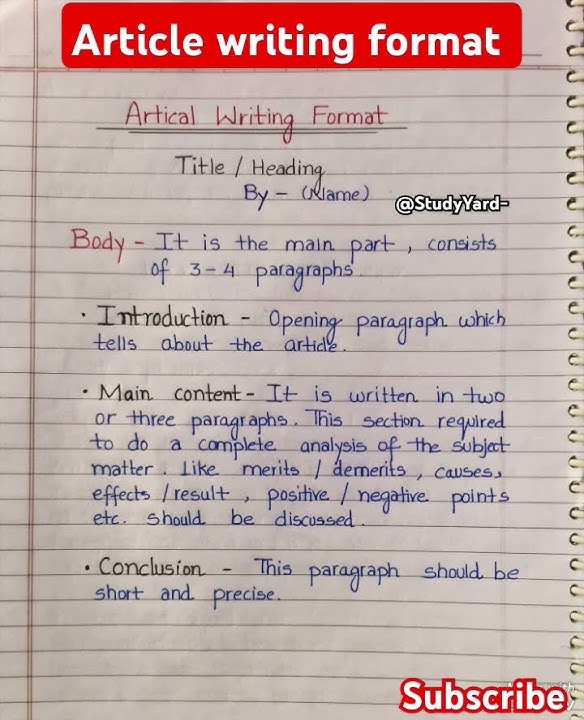 Article writing format
Artical Writing Format
Title / Heading
By - (Name)
@StudyYard-
Body - It is the main part, consists
of 3-4 paragraphs
• Introduction - Opening paragraph which
tells about the article.
• Main content - It is written in two
or three paragraphs. This section required
to do a complete analysis of the subject
matter. Like merits / demerits, causes,
effects / result, positive / negative points
etc. should be discussed.
• Conclusion - This paragraph should be
short and precise.
Subscribe